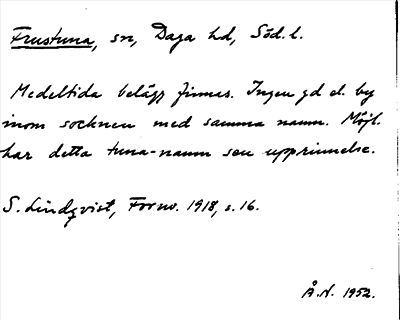 Frustuna, sn, Daga hd, Söd. l.
Medeltida belägg finnas. Ingen gd el. by
inom socknen med samma namn. Möjl.
har detta tuna-namn sen upprinnelse.
S. Lindqvist, Fornv. 1918, s. 16.
Å. N. 1952.